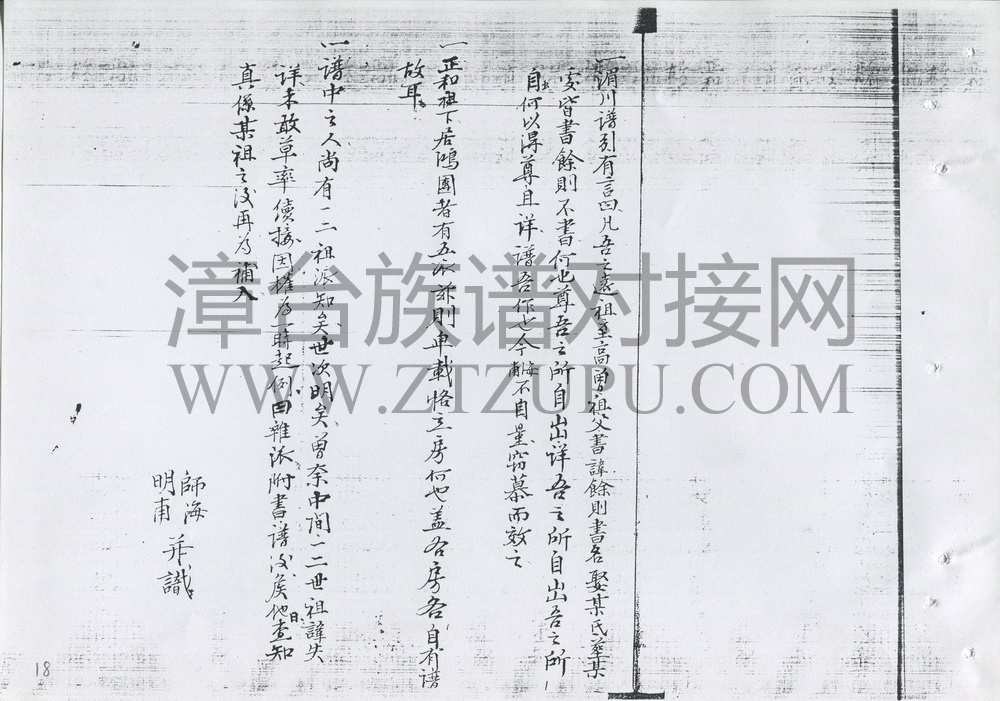 一湄川谱引有言曰凡吾之遠祖至高曾祖父書諱餘則書名娶某氏塟某
處皆書餘則不書何也尊吾之所自出詳吾之所自出吾之所
自出何以得尊且詳谱吾作也今海甫不自量窃慕而效之
一正和祖下居鴻圍者有五次訴則車載恪立房何也盖各房各自有谱
故耳
一谱中之人尚有一二祖派知矣世次明矣曾奈中间一二世祖諱失
详未敢草率儧接因權為一時起例曰雜派附書谱後俟他日查知
真係某祖之後再为補入
師海
明甫
并識
18
漳台族谱对接网
WWW.ZTZUPU.COM